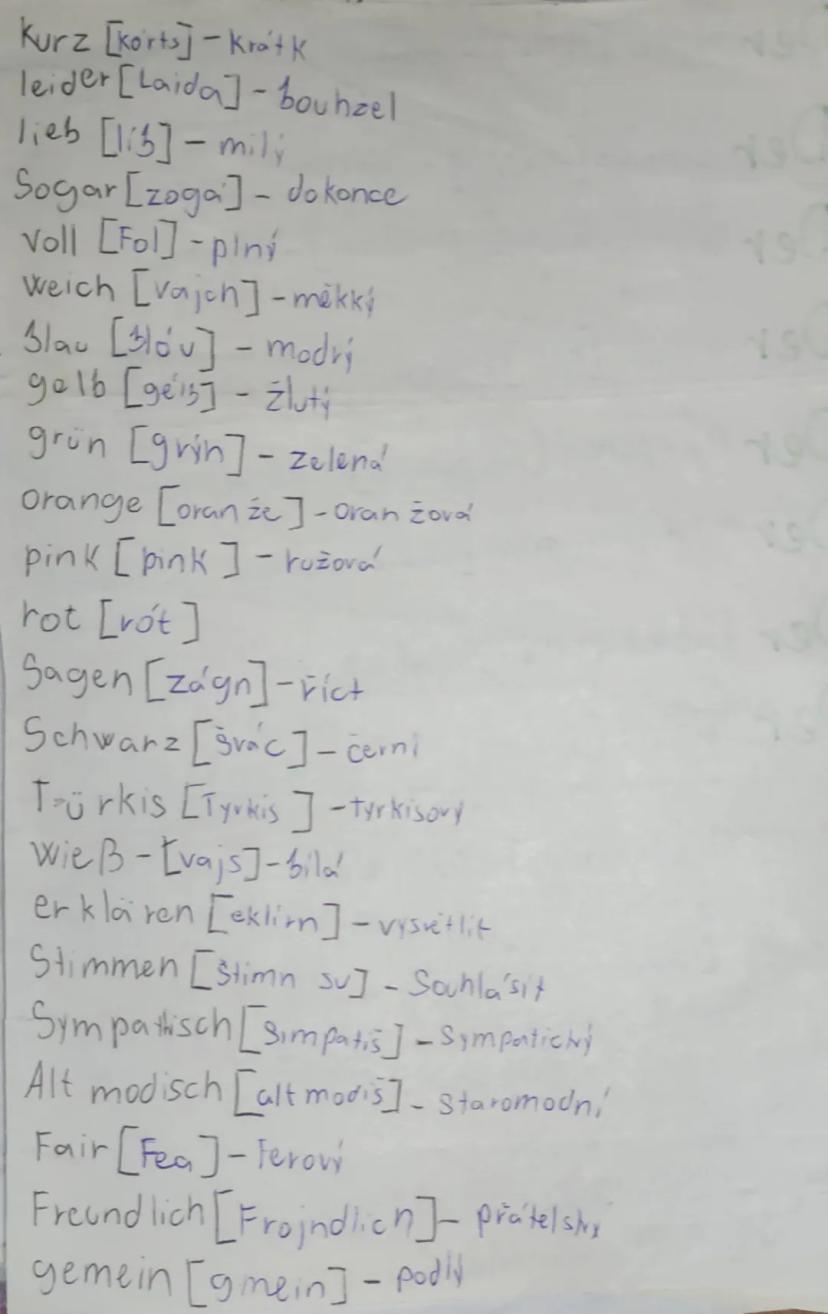 Kurz [kórts] - krátk
leider [Laida] - bouhzel
lieb [líb] - milý
Sogar [zogá] - dokonce
voll [Fol] - plný
weich [vajch] - měkký
blau [blóu] - modrý
gelb [gélb] - žlutý
grün [grýn] - zelená
orange [oranže] - oranžová
pink [pink] - ružová
rot [rót]
Sagen [zágn] - říct
Schwarz [švác] - černí
Türkis [Tyrkis] - tyrkisový
wieß - [vajs] - bílá
erklären [eklírn] - vysvětlit
Stimmen [štimn su] - Souhlasit
Sympathisch [simpatiš] - Sympatický
Alt modisch [alt modiš] - staromodní
Fair [Fea] - Ferový
Freundlich [Frojndlich] - přátelský
gemein [gmein] - podlý
Der
Der
Der
Der
Der
Der
Der
Der